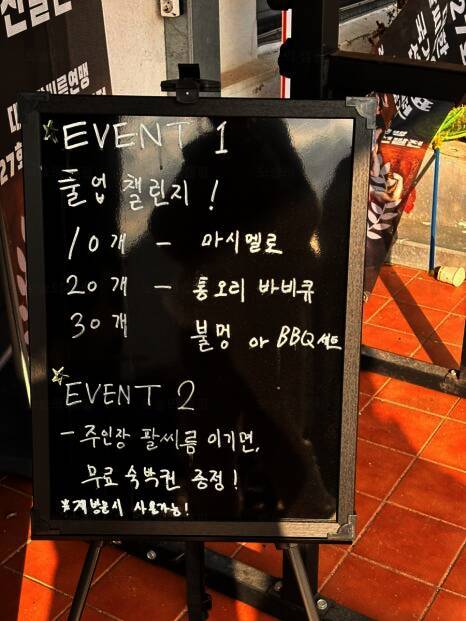 EVENT 1
풀업 챌린지!
10개 - 마시멜로
20개 - 통오리 바비큐
30개 불멍 or BBQ 세트
EVENT 2
- 주인장 팔씨름 이기면,
무료 숙박권 증정!
※재방문시 사용가능!